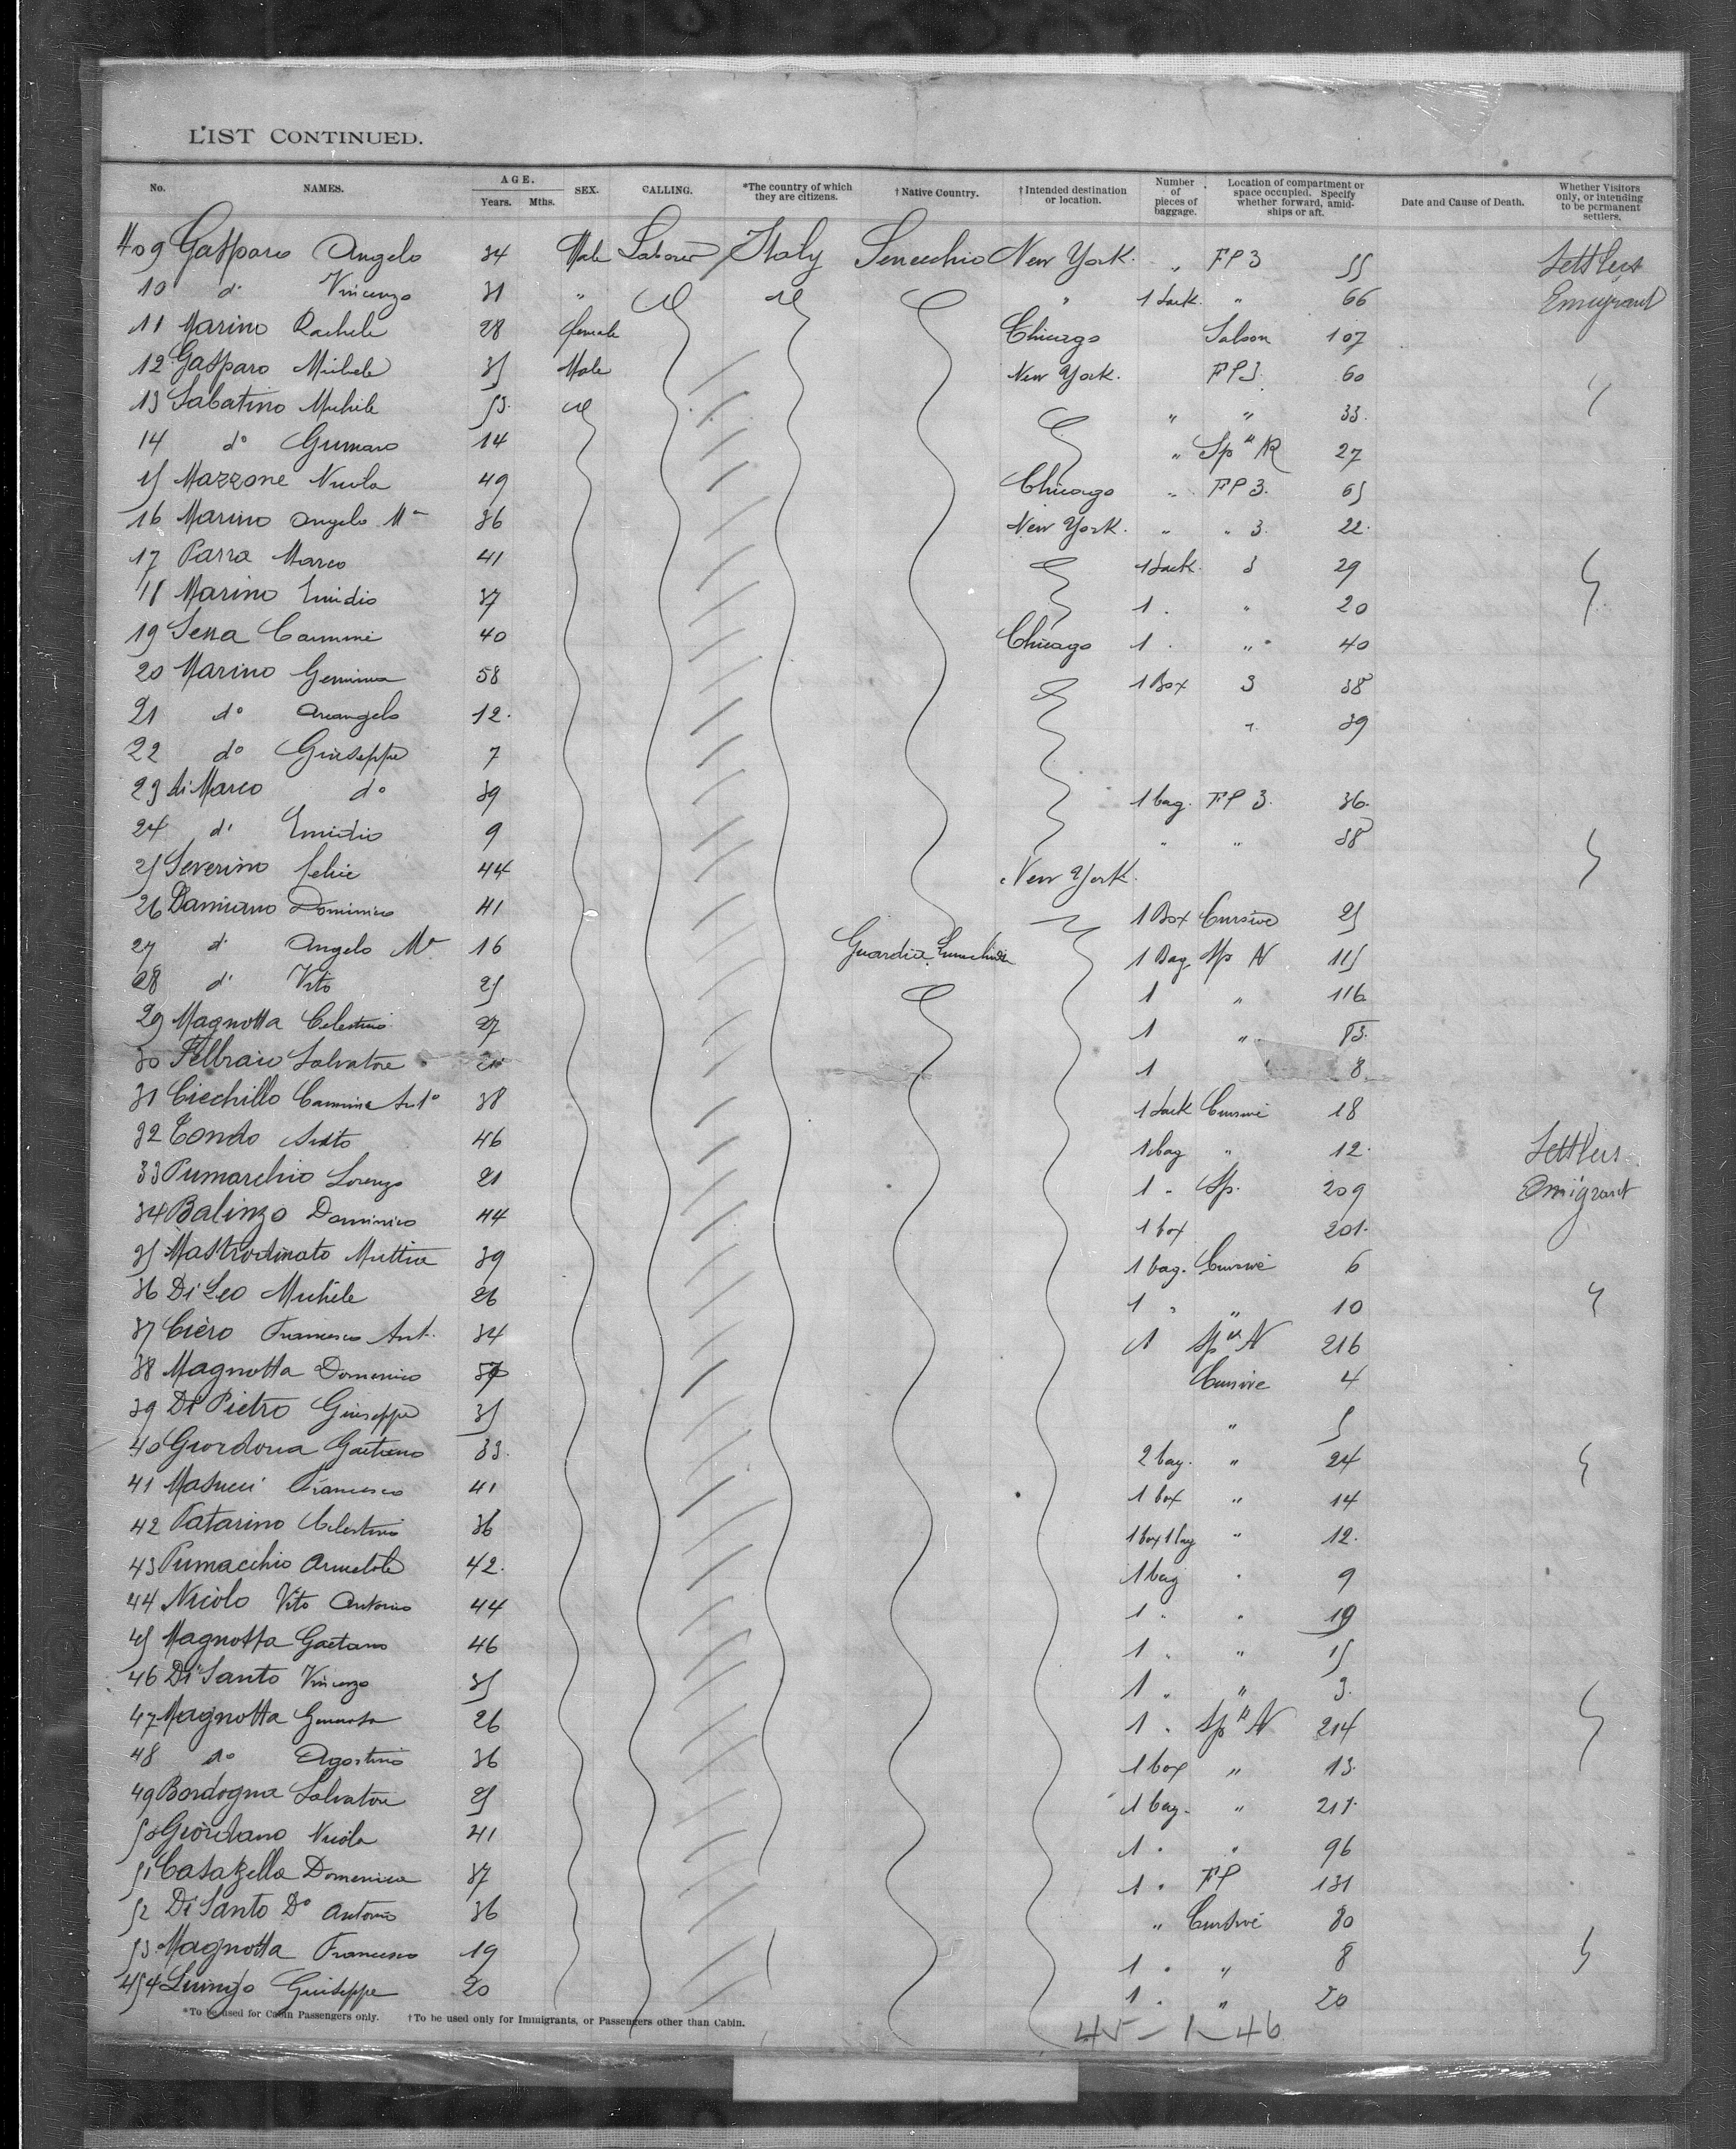 LIST CONTINUED.
No. NAMES. AGE. Years. Mths. SEX. CALLING. *The country of which they are citizens. †Native Country. †Intended destination or location. Number of pieces of baggage. Location of compartment or space occupied. Specify whether forward, amidships or aft. Date and Cause of Death. Whether Visitors only, or intending to be permanent settlers.
409 Gasparo Angelo 34 Male Laborer Italy Senecchio New York. " FP3 55 Settlers
10 do Vincenzo 31 " " 1 Sack. " 66 Emigrant
11 Marino Rachele 28 female Chicago Saloon 107
12 Gasparo Michele 35 Male New York. FP3. 60
13 Sabatino Michele 53. " " 33.
14 do 14 " Sp R 27
15 Mazzone Nicola 49 Chicago " FP3. 65
16 Marino Angelo Ma 36 New York. " " 3. 22.
17 Parra Marco 41 1 Sack. 3 29
18 Marino Emidio 37 1 . " 20
19 Serra Carmine 40 Chicago 1 . " 40
20 Marino 58 1 Box 3 38
21 do Arcangelo 12. " 39
22 do Giuseppe 7
23 di Marco do 39 1 bag. FP 3. 36.
24 do Emidio 9 " " 38
25 Severino Felice 44 New York.
26 Damiano Dominico 41 1 Box Cursive 25
27 do Angelo Ma 16 Guardia 1 Bag Sp N 115
28 do Vito 25 1 " 116
29 Magnotta Celestino 27 1 " 13.
30 Febbraio Salvatore 1 8
31 Ciechillo Carmine Anto 38 1 Sack Cursive 18
32 Tondo Sisto 46 1 bag " 12. Settlers
33 Pumarchio Lorenzo 21 1 " Sp. 209 Emigrant
34 Balinzo Dominico 44 1 box 201.
35 Mastrodinato Mattia 39 1 bag. Cursive 6
36 Di Leo Michele 26 1 " " 10
37 Ciero Francesco Ant. 34 1 Sp N 216
38 Magnotta Domenico Cursive 4
39 Di Pietro Giuseppe 35 " 5
40 Giordona Gaetano 33. 2 bag. " 24
41 Masucci Francesco 41 1 box " 14
42 Tatarino Celestino 36 1 box 1 bag " 12.
43 Pumacchio 42. 1 bag " 9
44 Nicolo Vito Antonio 44 1 " " 19
45 Magnotta Gaetano 46 1 " " 15
46 Di Santo Vincenzo 35 1 " " 3.
47 Magnotta 26 1 " Sp N 214
48 do Agostino 36 1 box " 13.
49 Bordogna Salvatore 25 1 bag. " 211.
50 Giordano Nicola 41 1 " " 96
51 Casatzella Domenica 37 1 " FP 131
52 Di Santo Do Antonio 36 " Cursive 80
53 Magnotta Francesco 19 1 " " 8
454 Giuseppe 20 1 . " 20
*To be used for Cabin Passengers only. †To be used only for Immigrants, or Passengers other than Cabin.
45 - 1 - 46